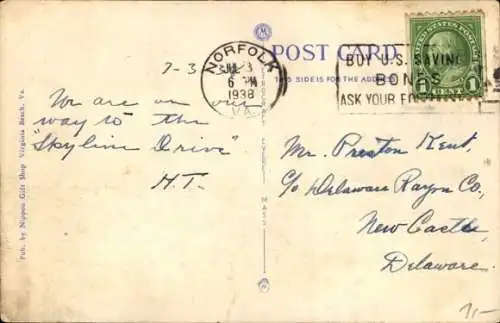 POST CARD
THIS SIDE IS FOR THE ADDRESS
UNITED STATES POSTAGE
1 CENT 1
NORFOLK
JUL 3
6 PM
1938
VA.
BUY U.S. SAVINGS
BONDS
ASK YOUR
7-3-38
We are on our
way to the
"Skyline Drive"
H.T.
Mr. Preston Kent,
c/o Delaware Rayon Co.,
New Castle,
Delaware.
71-
Pub. by Nippon Gift Shop Virginia Beach, Va.
MASS